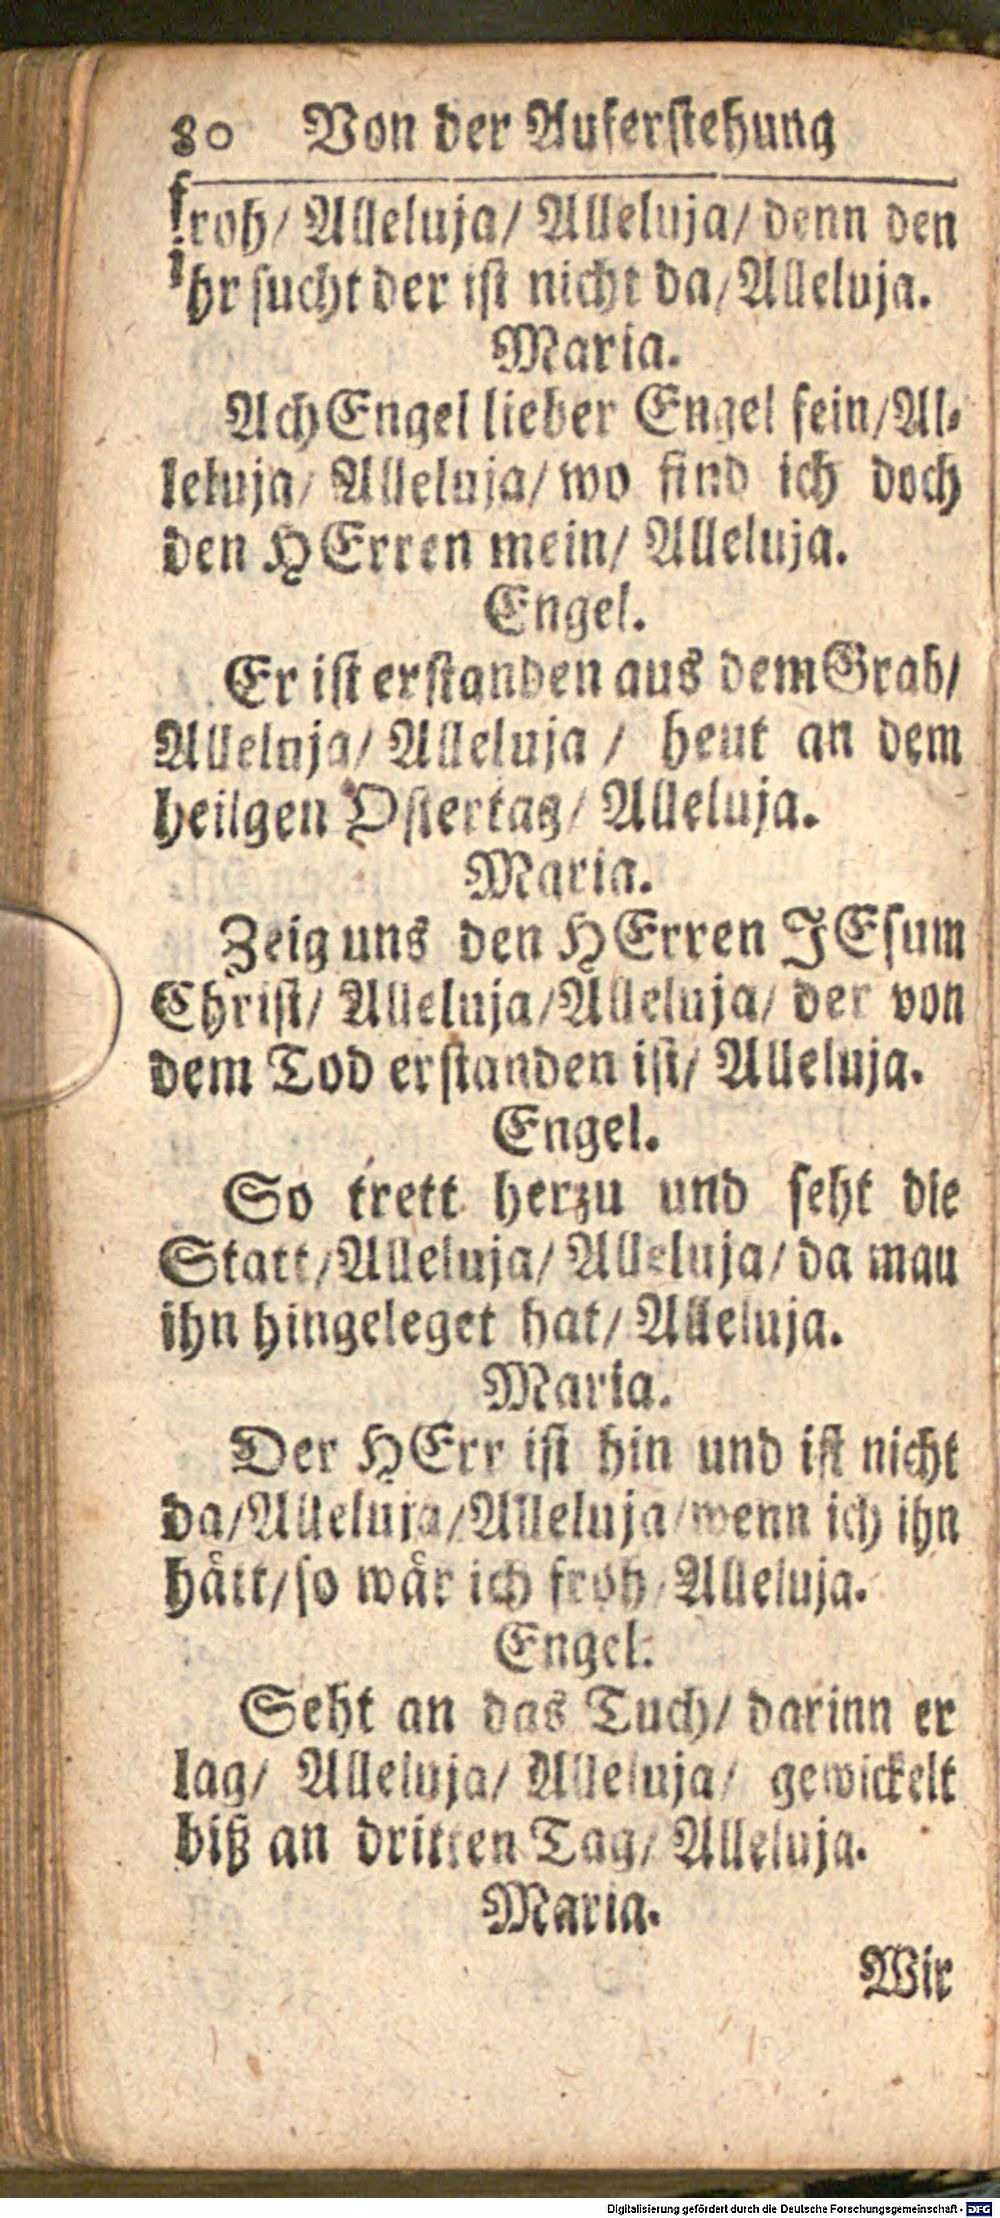 80 Von der Auferstehung
froh/ Alleluja/ Alleluja/ denn den
ihr sucht der ist nicht da/ Alleluja.
Maria.
Ach Engel lieber Engel fein/ Al-
leluja/ Alleluja/ wo find ich doch
den HErren mein/ Alleluja.
Engel.
Er ist erstanden aus dem Grab/
Alleluja/ Alleluja / heut an dem
heilgen Ostertag/ Alleluja.
Maria.
Zeig uns den HErren JEsum
Christ/ Alleluja/ Alleluja/ der von
dem Tod erstanden ist/ Alleluja.
Engel.
So trett herzu und seht die
Statt/ Alleluja/ Alleluja/ da mau
ihn hingeleget hat/ Alleluja.
Maria.
Der HErr ist hin und ist nicht
da/ Alleluja/ Alleluja/ wenn ich ihn
hätt/ so wär ich froh/ Alleluja.
Engel.
Seht an das Tuch/ darinn er
lag/ Alleluja/ Alleluja/ gewickelt
biß an dritten Tag/ Alleluja.
Maria.
Wir
Digitalisierung gefördert durch die Deutsche Forschungsgemeinschaft - DFG